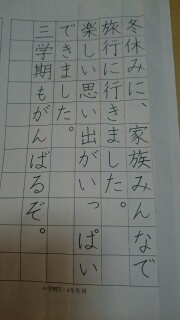 冬休みに、家族みんなで
旅行に行きました。
楽しい思い出がいっぱい
できました。
三学期もがんばるぞ。